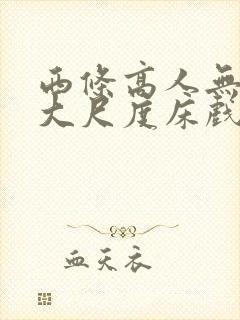 両條高人無
大尺度床戲
血天衣